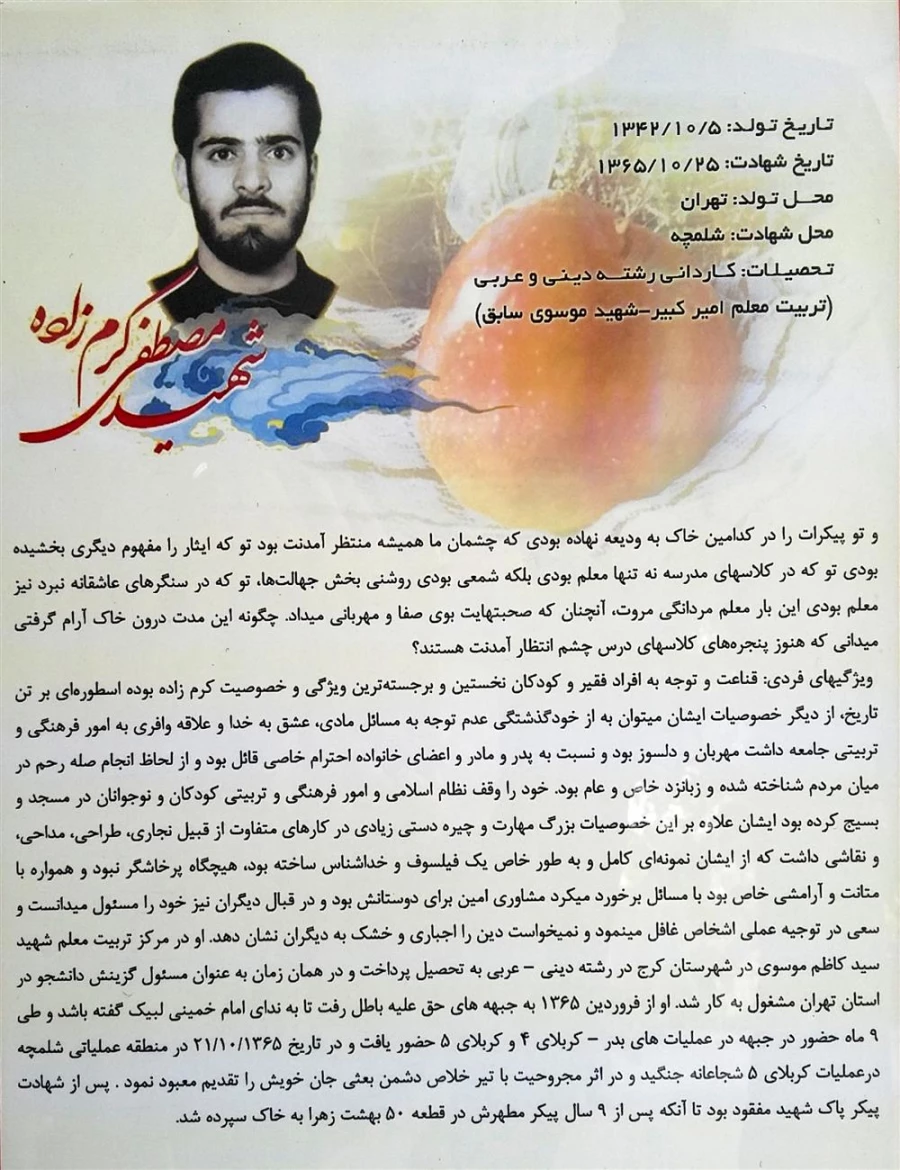 تاریخ تولد: ۱۳۴۲/۱۰/۵
تاریخ شهادت: ۱۳۶۵/۱۰/۲۵
محل تولد: تهران
محل شهادت: شلمچه
تحصیلات: کاردانی رشته دینی و عربی
(تربیت معلم امیر کبیر-شهید موسوی سابق)
شهید مصطفی کرم زاده
و تو پیکرات را در کدامین خاک به ودیعه نهاده بودی که چشمان ما همیشه منتظر آمدنت بود تو که ایثار را مفهوم دیگری بخشیده
بودی تو که در کلاسهای مدرسه نه تنها معلم بودی بلکه شمعی بودی روشنی بخش جهالت‌ها، تو که در سنگرهای عاشقانه نبرد نیز
معلم بودی این بار معلم مردانگی مروت، آنچنان که صحبتهایت بوی صفا و مهربانی میداد. چگونه این مدت درون خاک آرام گرفتی
میدانی که هنوز پنجره‌های کلاسهای درس چشم انتظار آمدنت هستند؟
ویژگیهای فردی: قناعت و توجه به افراد فقیر و کودکان نخستین و برجسته‌ترین ویژگی و خصوصیت کرم زاده بوده اسطوره‌ای بر تن
تاریخ، از دیگر خصوصیات ایشان میتوان به از خودگذشتگی عدم توجه به مسائل مادی، عشق به خدا و علاقه وافری به امور فرهنگی و
تربیتی جامعه داشت مهربان و دلسوز بود و نسبت به پدر و مادر و اعضای خانواده احترام خاصی قائل بود و از لحاظ انجام صله رحم در
میان مردم شناخته شده و زبانزد خاص و عام بود. خود را وقف نظام اسلامی و امور فرهنگی و تربیتی کودکان و نوجوانان در مسجد و
بسیج کرده بود ایشان علاوه بر این خصوصیات بزرگ مهارت و چیره دستی زیادی در کارهای متفاوت از قبیل نجاری، طراحی، مداحی،
و نقاشی داشت که از ایشان نمونه‌ای کامل و به طور خاص یک فیلسوف و خداشناس ساخته بود، هیچگاه پرخاشگر نبود و همواره با
متانت و آرامشی خاص بود با مسائل برخورد میکرد مشاوری امین برای دوستانش بود و در قبال دیگران نیز خود را مسئول میدانست و
سعی در توجیه عملی اشخاص غافل مینمود و نمیخواست دین را اجباری و خشک به دیگران نشان دهد. او در مرکز تربیت معلم شهید
سید کاظم موسوی در شهرستان کرج در رشته دینی - عربی به تحصیل پرداخت و در همان زمان به عنوان مسئول گزینش دانشجو در
استان تهران مشغول به کار شد. او از فروردین ۱۳۶۵ به جبهه های حق علیه باطل رفت تا به ندای امام خمینی لبیک گفته باشد و طی
۹ ماه حضور در جبهه در عملیات های بدر - کربلای ۴ و کربلای ۵ حضور یافت و در تاریخ ۲۱/۱۰/۱۳۶۵ در منطقه عملیاتی شلمچه
درعملیات کربلای ۵ شجاعانه جنگید و در اثر مجروحیت با تیر خلاص دشمن بعثی جان خویش را تقدیم معبود نمود . پس از شهادت
پیکر پاک شهید مفقود بود تا آنکه پس از ۹ سال پیکر مطهرش در قطعه ۵۰ بهشت زهرا به خاک سپرده شد.